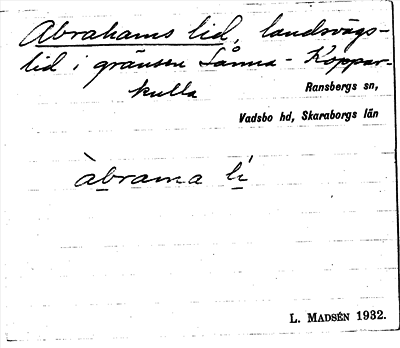 Abrahams lid, landsvägs-
lid i gränsen Sånna - Koppar-
kulla
Ransbergs sn,
Vadsbo hd, Skaraborgs län
àbrama lí
L. MADSÉN 1932.